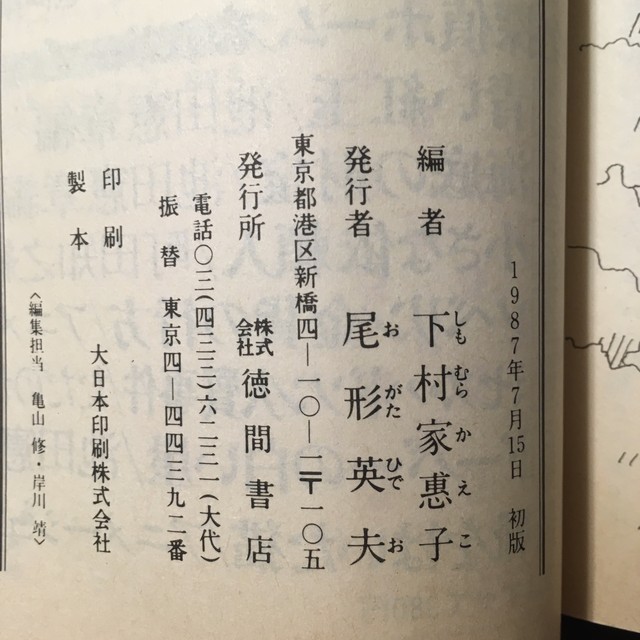 1987年7月15日 初版
編者 下村家恵子
しもむらかえこ
発行者 尾形英夫
おがたひでお
東京都港区新橋四―一〇―一〒一〇五
発行所 株式会社 徳間書店
電話〇三(四三三)六二三一(大代)
振替 東京四―四四三九二番
印刷
製本 大日本印刷株式会社
〈編集担当 亀山 修・岸川 靖〉